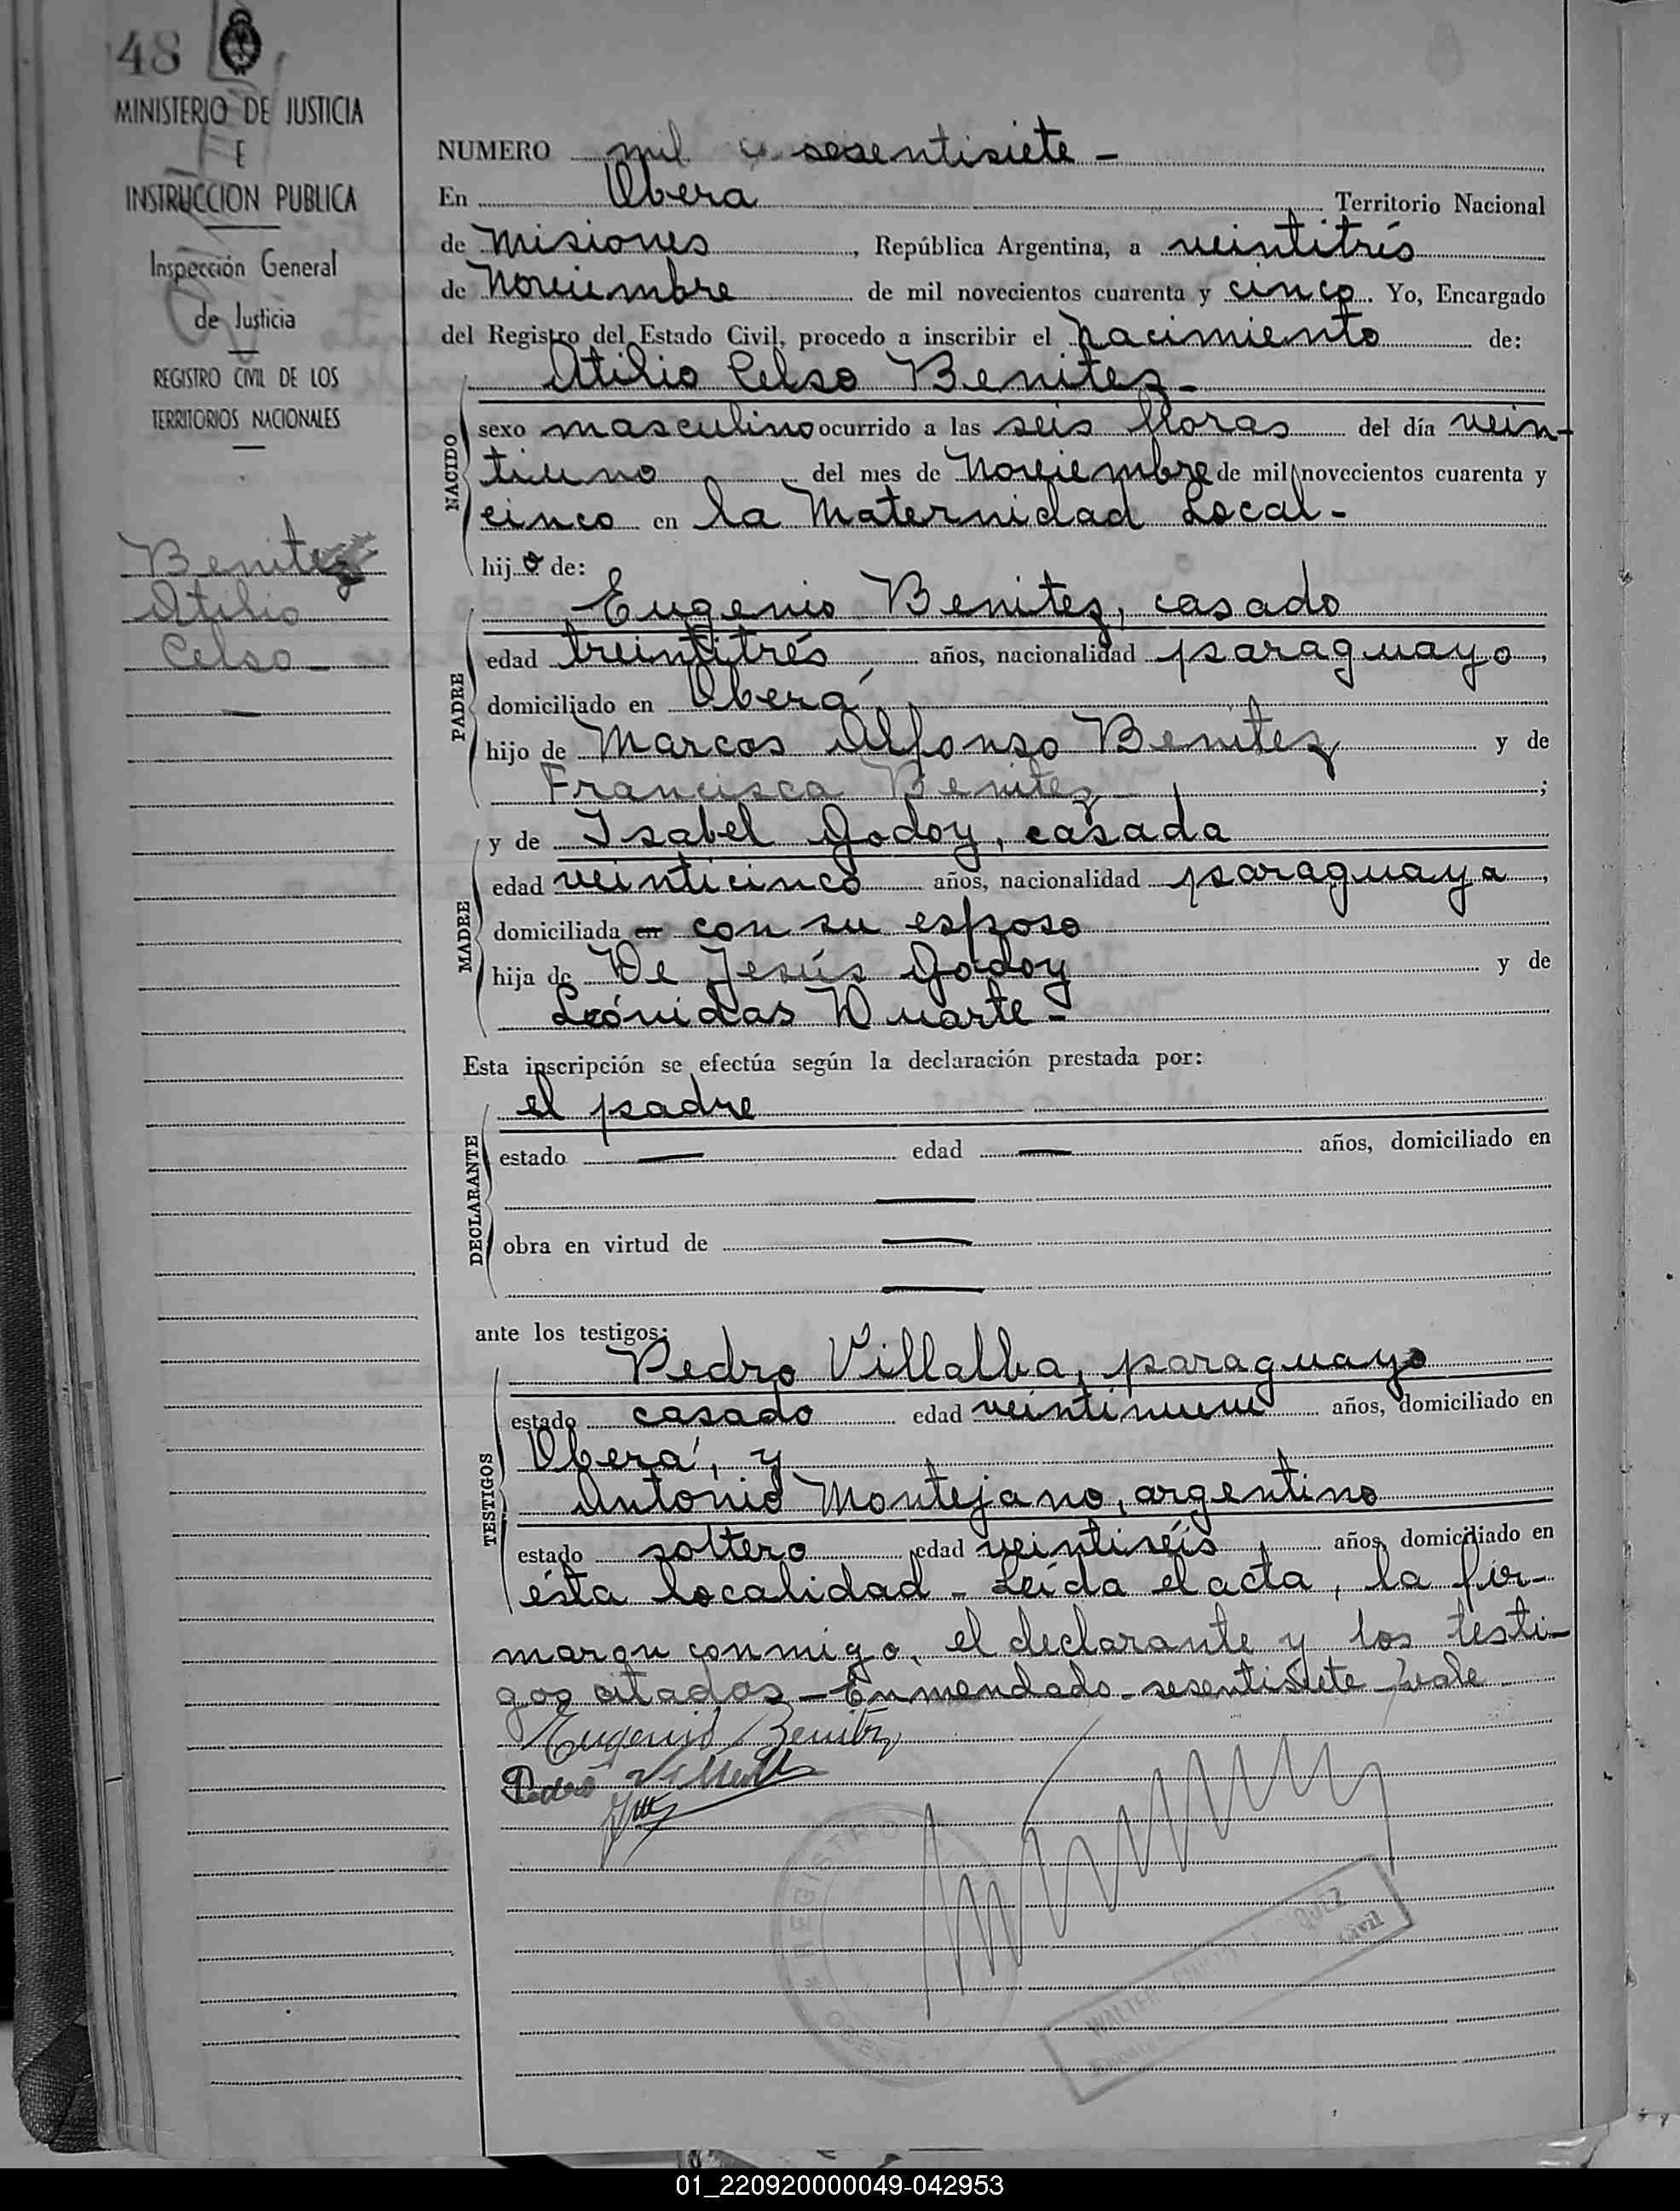 48
MINISTERIO DE JUSTICIA
E
INSTRUCCION PUBLICA
Inspección General
de Justicia
REGISTRO CIVIL DE LOS
TERRITORIOS NACIONALES
Benitez
Atilio
Celso -
NUMERO mil sesentisiete -
En Obera Territorio Nacional
de Misiones, República Argentina, a veintitrés
de Noviembre de mil novecientos cuarenta y cinco. Yo, Encargado
del Registro del Estado Civil, procedo a inscribir el Nacimiento de:
Atilio Celso Benitez -
NACIDO
sexo masculino ocurrido a las seis Horas del día vein-
tiuno del mes de Noviembre de mil novecientos cuarenta y
cinco en la Maternidad Local -
hijo de:
PADRE
Eugenio Benitez, casado
edad treintitrés años, nacionalidad paraguayo,
domiciliado en Oberá,
hijo de Marcos Alfonso Benitez y de
Francisca Benitez - ;
MADRE
y de Isabel Godoy, casada
edad veinticinco años, nacionalidad paraguaya,
domiciliada en con su esposo
hija de De Jesús Godoy y de
Leónidas Duarte -
Esta inscripción se efectúa según la declaración prestada por:
DECLARANTE
el padre
estado — edad — años, domiciliado en
—
obra en virtud de —
—
ante los testigos:
TESTIGOS
Pedro Villalba, paraguayo
estado casado edad veintinueve años, domiciliado en
Oberá, y
Antonio Montejano, argentino
estado soltero edad veintiséis años, domiciliado en
ésta localidad - Leída el acta, la fir-
maron conmigo, el declarante y los testi-
gos citados - Enmendado - sesentisiete - vale
Eugenio Benitez
Pedro Villalba
REGISTRO
OBERA
WALTER
Civil
01_220920000049-042953